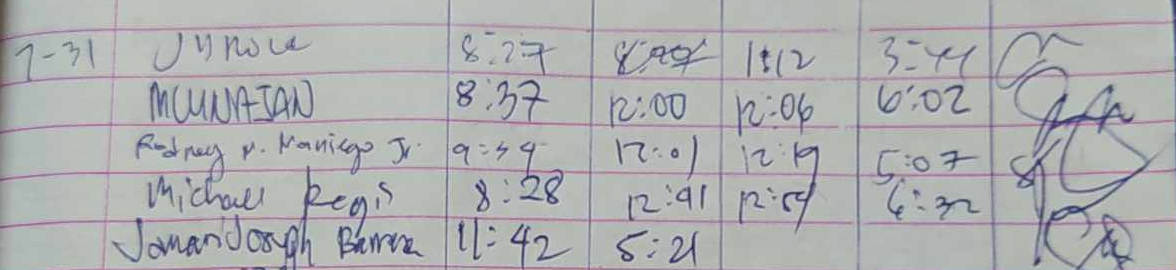 7-31 8:27 1:12 3:44
MCUNAJAN 8:37 12:00 12:06 6:02
Rodney M. Maniego Jr. 9:59 12:01 12:19 5:07
Michael Regis 8:28 12:41 12:54 6:32
11:42 5:21